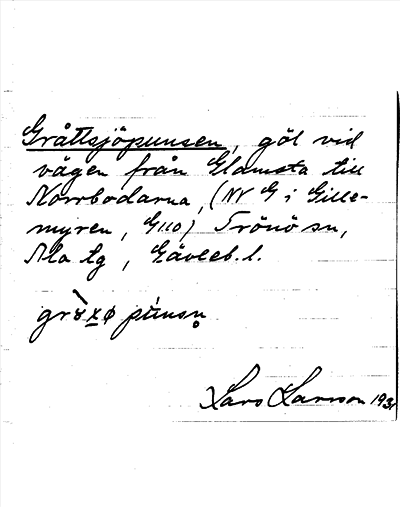 Gråttsjöpunsen, göl vid
vägen från Glamsta till
Norrbodarna, (NV G i Gille-
myren, G110) Trönö sn,
Ala tg, Gävleb. l.
pùnsn̥
Lars Larsson 1931